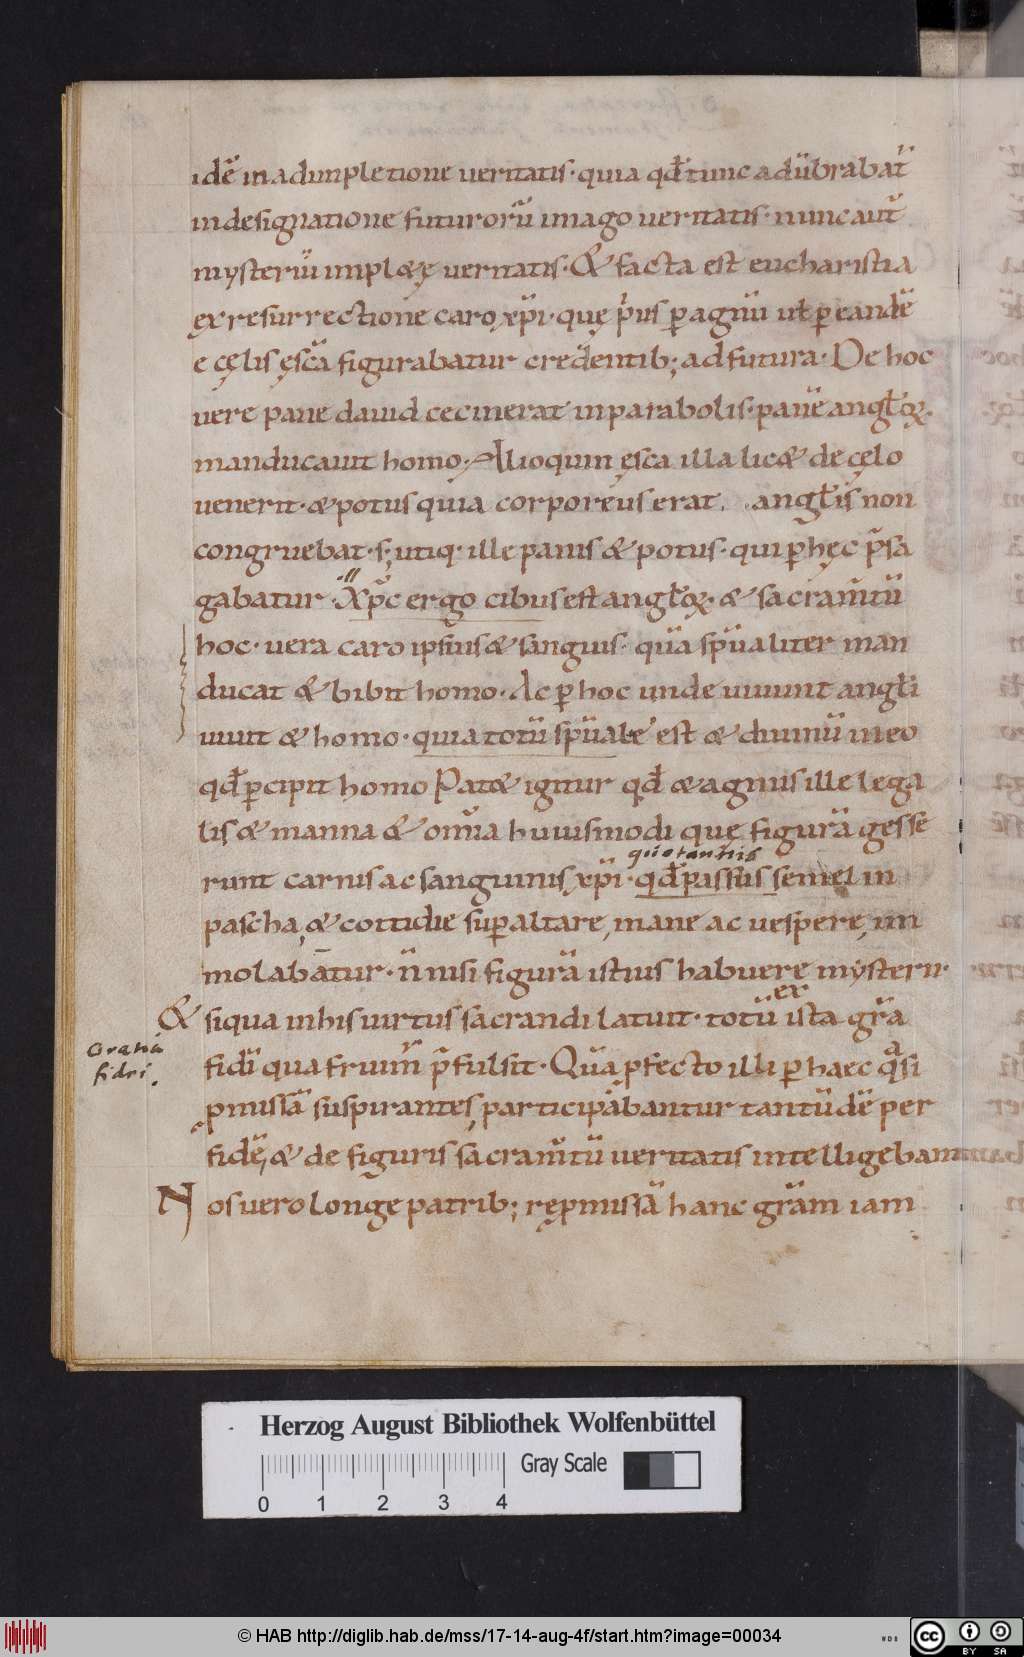 idē in adimpletione ueritatis · quia qđ tunc adūbrabat̄
in designatione futurorū imago ueritatis · nunc aut̄
mysteriū implæ & ueritatis · & facta est eucharistia
ex resurrectione caro xp̄i · quę p̄us ꝑ agnū uł ꝑ eandē
e cęlis ęscā figurabatur credentib; ad futura · De hoc
uere pane dauid cecinerat in parabolis · panē angłoꝝ
manducauit homo · Alioquin ęsca illa lic& de cęlo
uenerit · & potus quia corporeus erat · angłis non
congruebat · s; utiq · ille panis & potus · qui ꝑ hęc p̄sa
gabatur · Xp̄c ergo cibus est angłoꝝ · & sacram̄tū
hoc · uera caro ipsius & sanguis · quā sp̄ualiter man
ducat & bibit homo · Ac ꝑ hoc unde uiuunt angłi
uiuit & homo · quia totū sp̄uale est & diuinū in eo
qđ ꝑcipit homo Pat& igitur qđ & agnus ille lega
lis & manna & om̄ia huiusmodi quę figurā gesse
quotannis
runt carnis ac sanguinis xp̄i · qđ passus semel in
pascha, & cottidie suꝑ altare, mane ac uespere, im
molabatur · n̄ nisi figurā istius habuere mysterii ·
& siqua in his uirtus sacrandi latuit · totū ex ista gr̄a
Gratia
fidei.
fidei qua fruim̄ p̄fulsit · Quā ꝓfecto illi ꝑ haec q̄si
ꝓmissā suspirantes, participabantur tantūdē per
fidē, & de figuris sacram̄tū ueritatis intelligebant
Nos uero longe patrib; reꝓmissā hanc gr̄am iam
Herzog August Bibliothek Wolfenbüttel
Gray Scale
0 1 2 3 4
© HAB http://diglib.hab.de/mss/17-14-aug-4f/start.htm?image=00034
WDB
cc BY SA